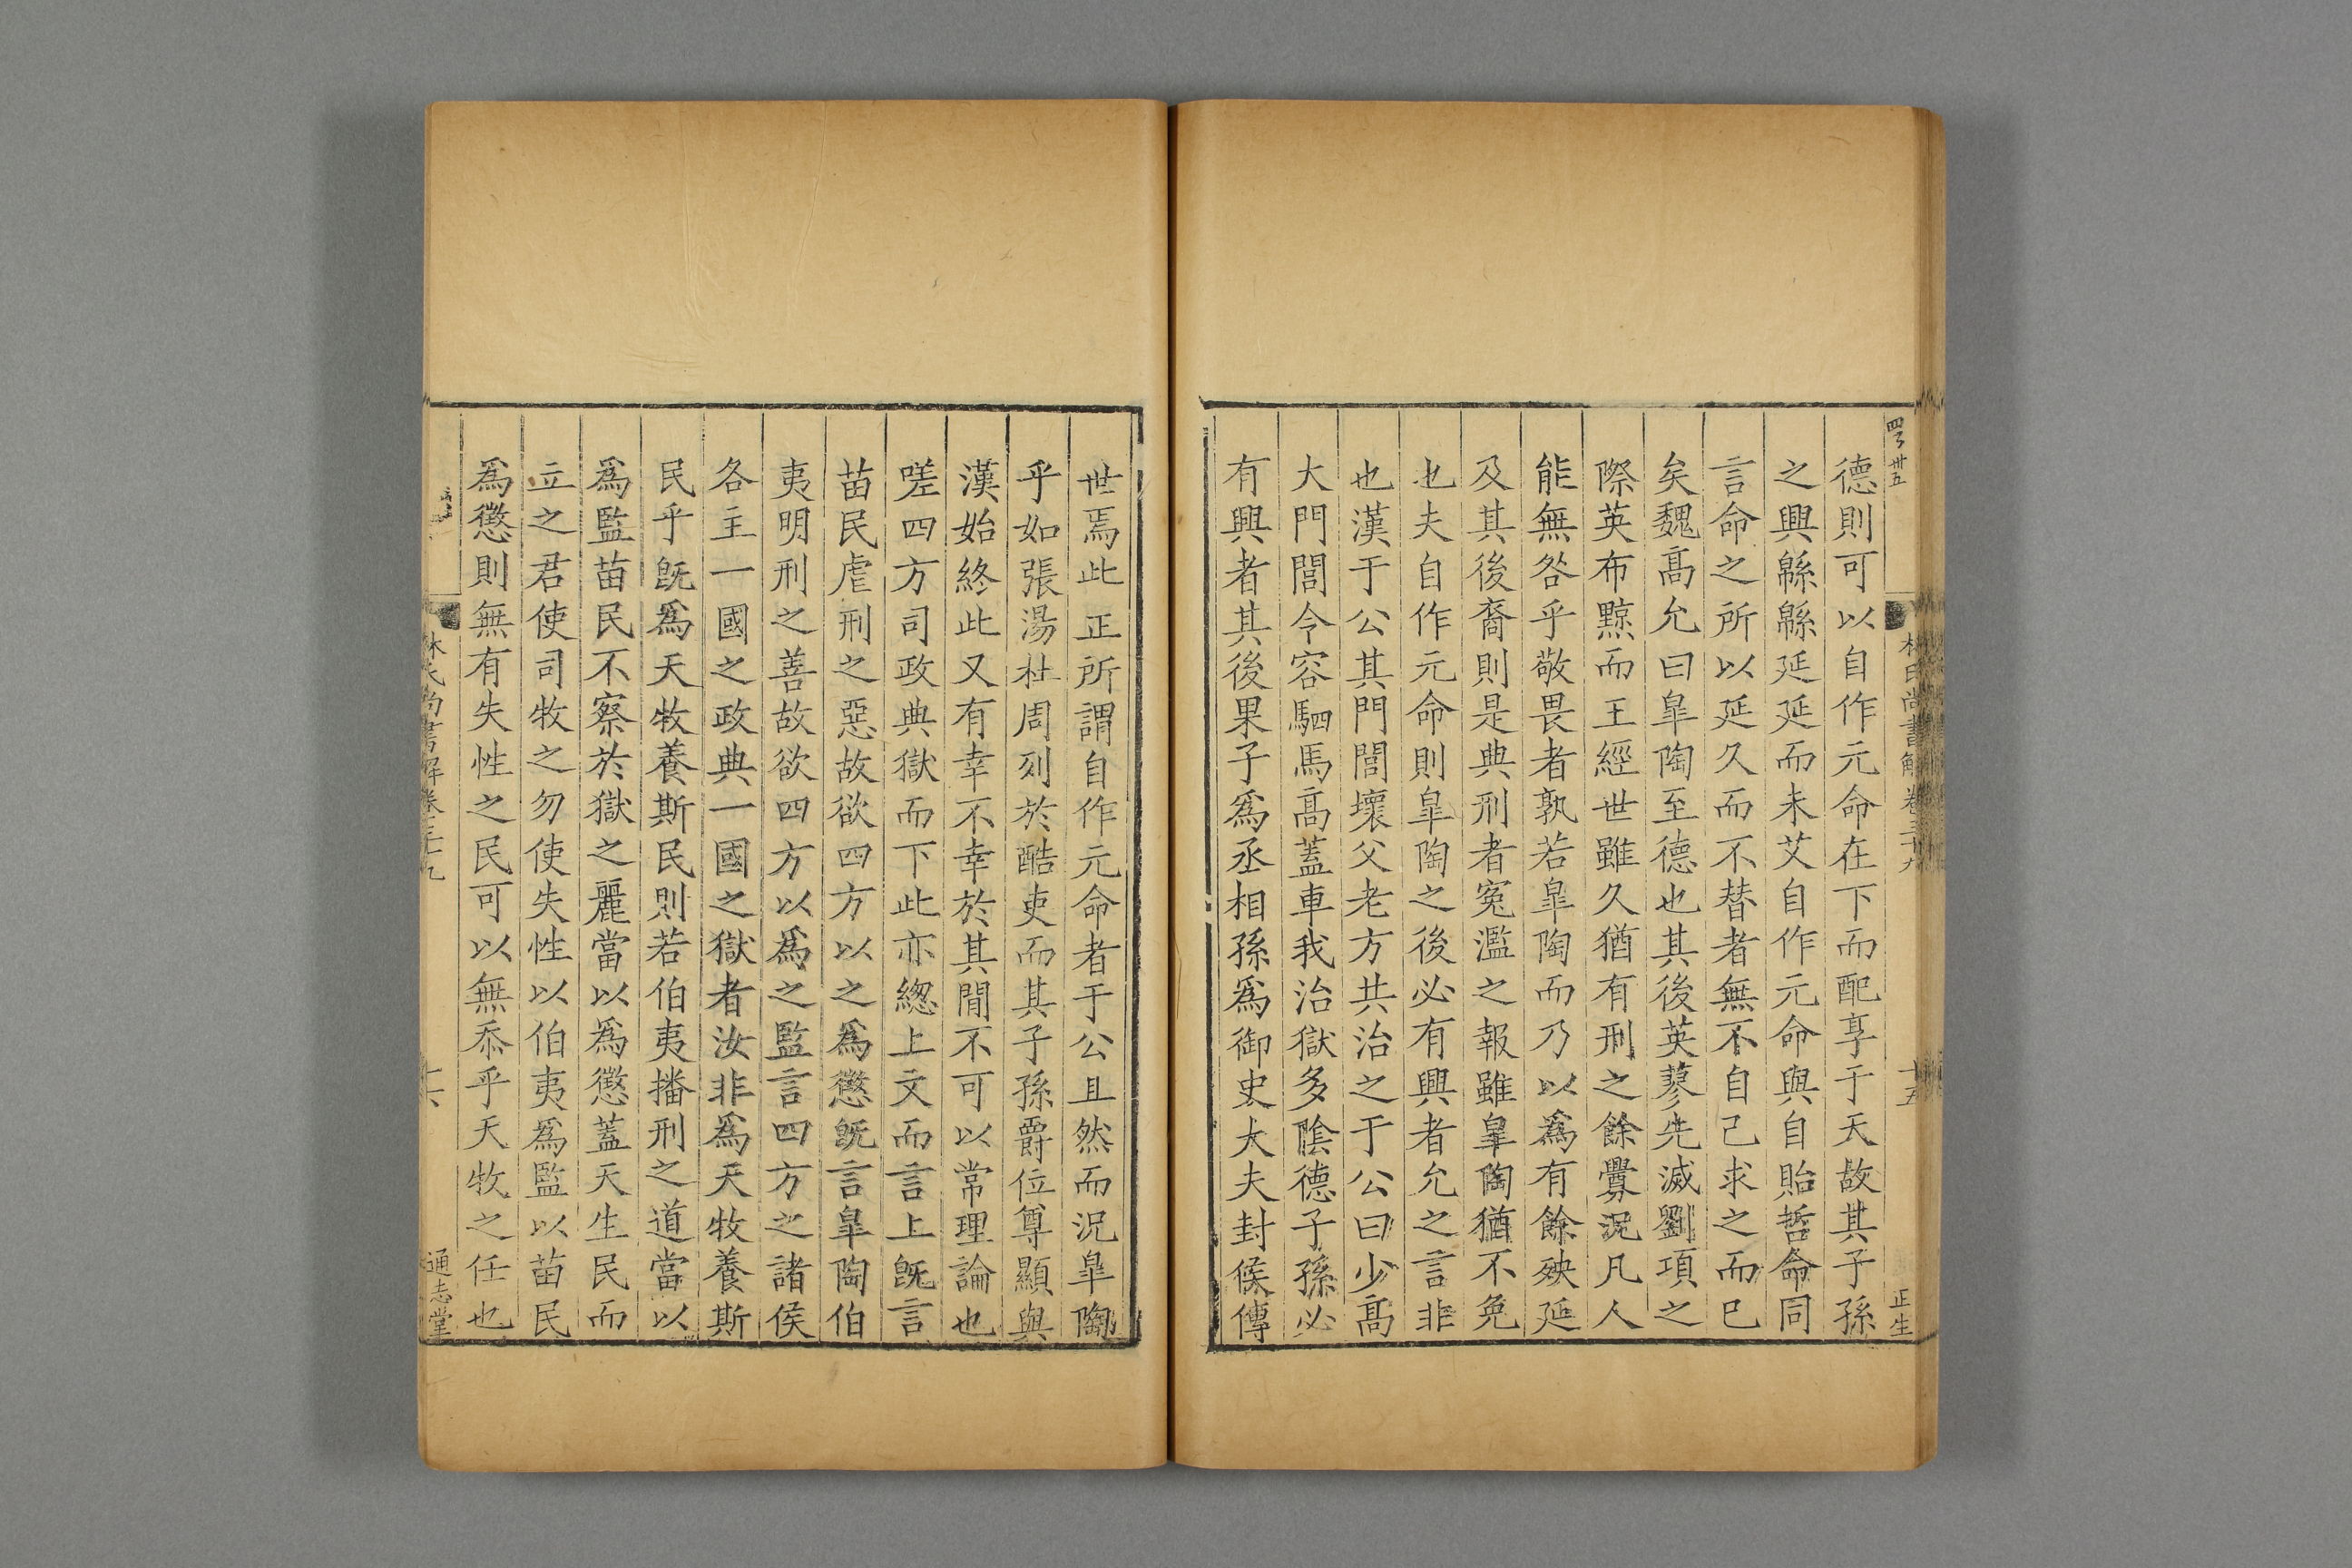 德則可以自作元命在下而配享于天故其子孫
之興緜緜延延而未艾自作元命與自貽哲命同
言命之所以延久而不替者無不自己求之而已
矣魏高允曰臯陶至德也其後英蓼先滅劉項之
際英布黥而王經世雖久猶有刑之餘釁況凡人
能無咎乎敬畏者孰若臯陶而乃以爲有餘殃延
及其後裔則是典刑者寃濫之報雖臯陶猶不免
也夫自作元命則臯陶之後必有興者允之言非
也漢于公其門閭壞父老方共治之于公曰少高
大門閭令容駟馬高蓋車我治獄多陰德子孫必
有興者其後果子爲丞相孫爲御史大夫封侯傳
世焉此正所謂自作元命者于公且然而況臯陶
乎如張湯杜周列於酷吏而其子孫爵位尊顯與
漢始終此又有幸不幸於其閒不可以常理論也
嗟四方司政典獄而下此亦緫上文而言上旣言
苗民虐刑之惡故欲四方以之爲懲旣言臯陶伯
夷明刑之善故欲四方以爲之監言四方之諸侯
各主一國之政典一國之獄者汝非爲天牧養斯
民乎旣爲天牧養斯民則若伯夷播刑之道當以
爲監苗民不察於獄之麗當以爲懲蓋天生民而
立之君使司牧之勿使失性以伯夷爲監以苗民
爲懲則無有失性之民可以無忝乎天牧之任也
林氏尚書解卷三十九
通志堂